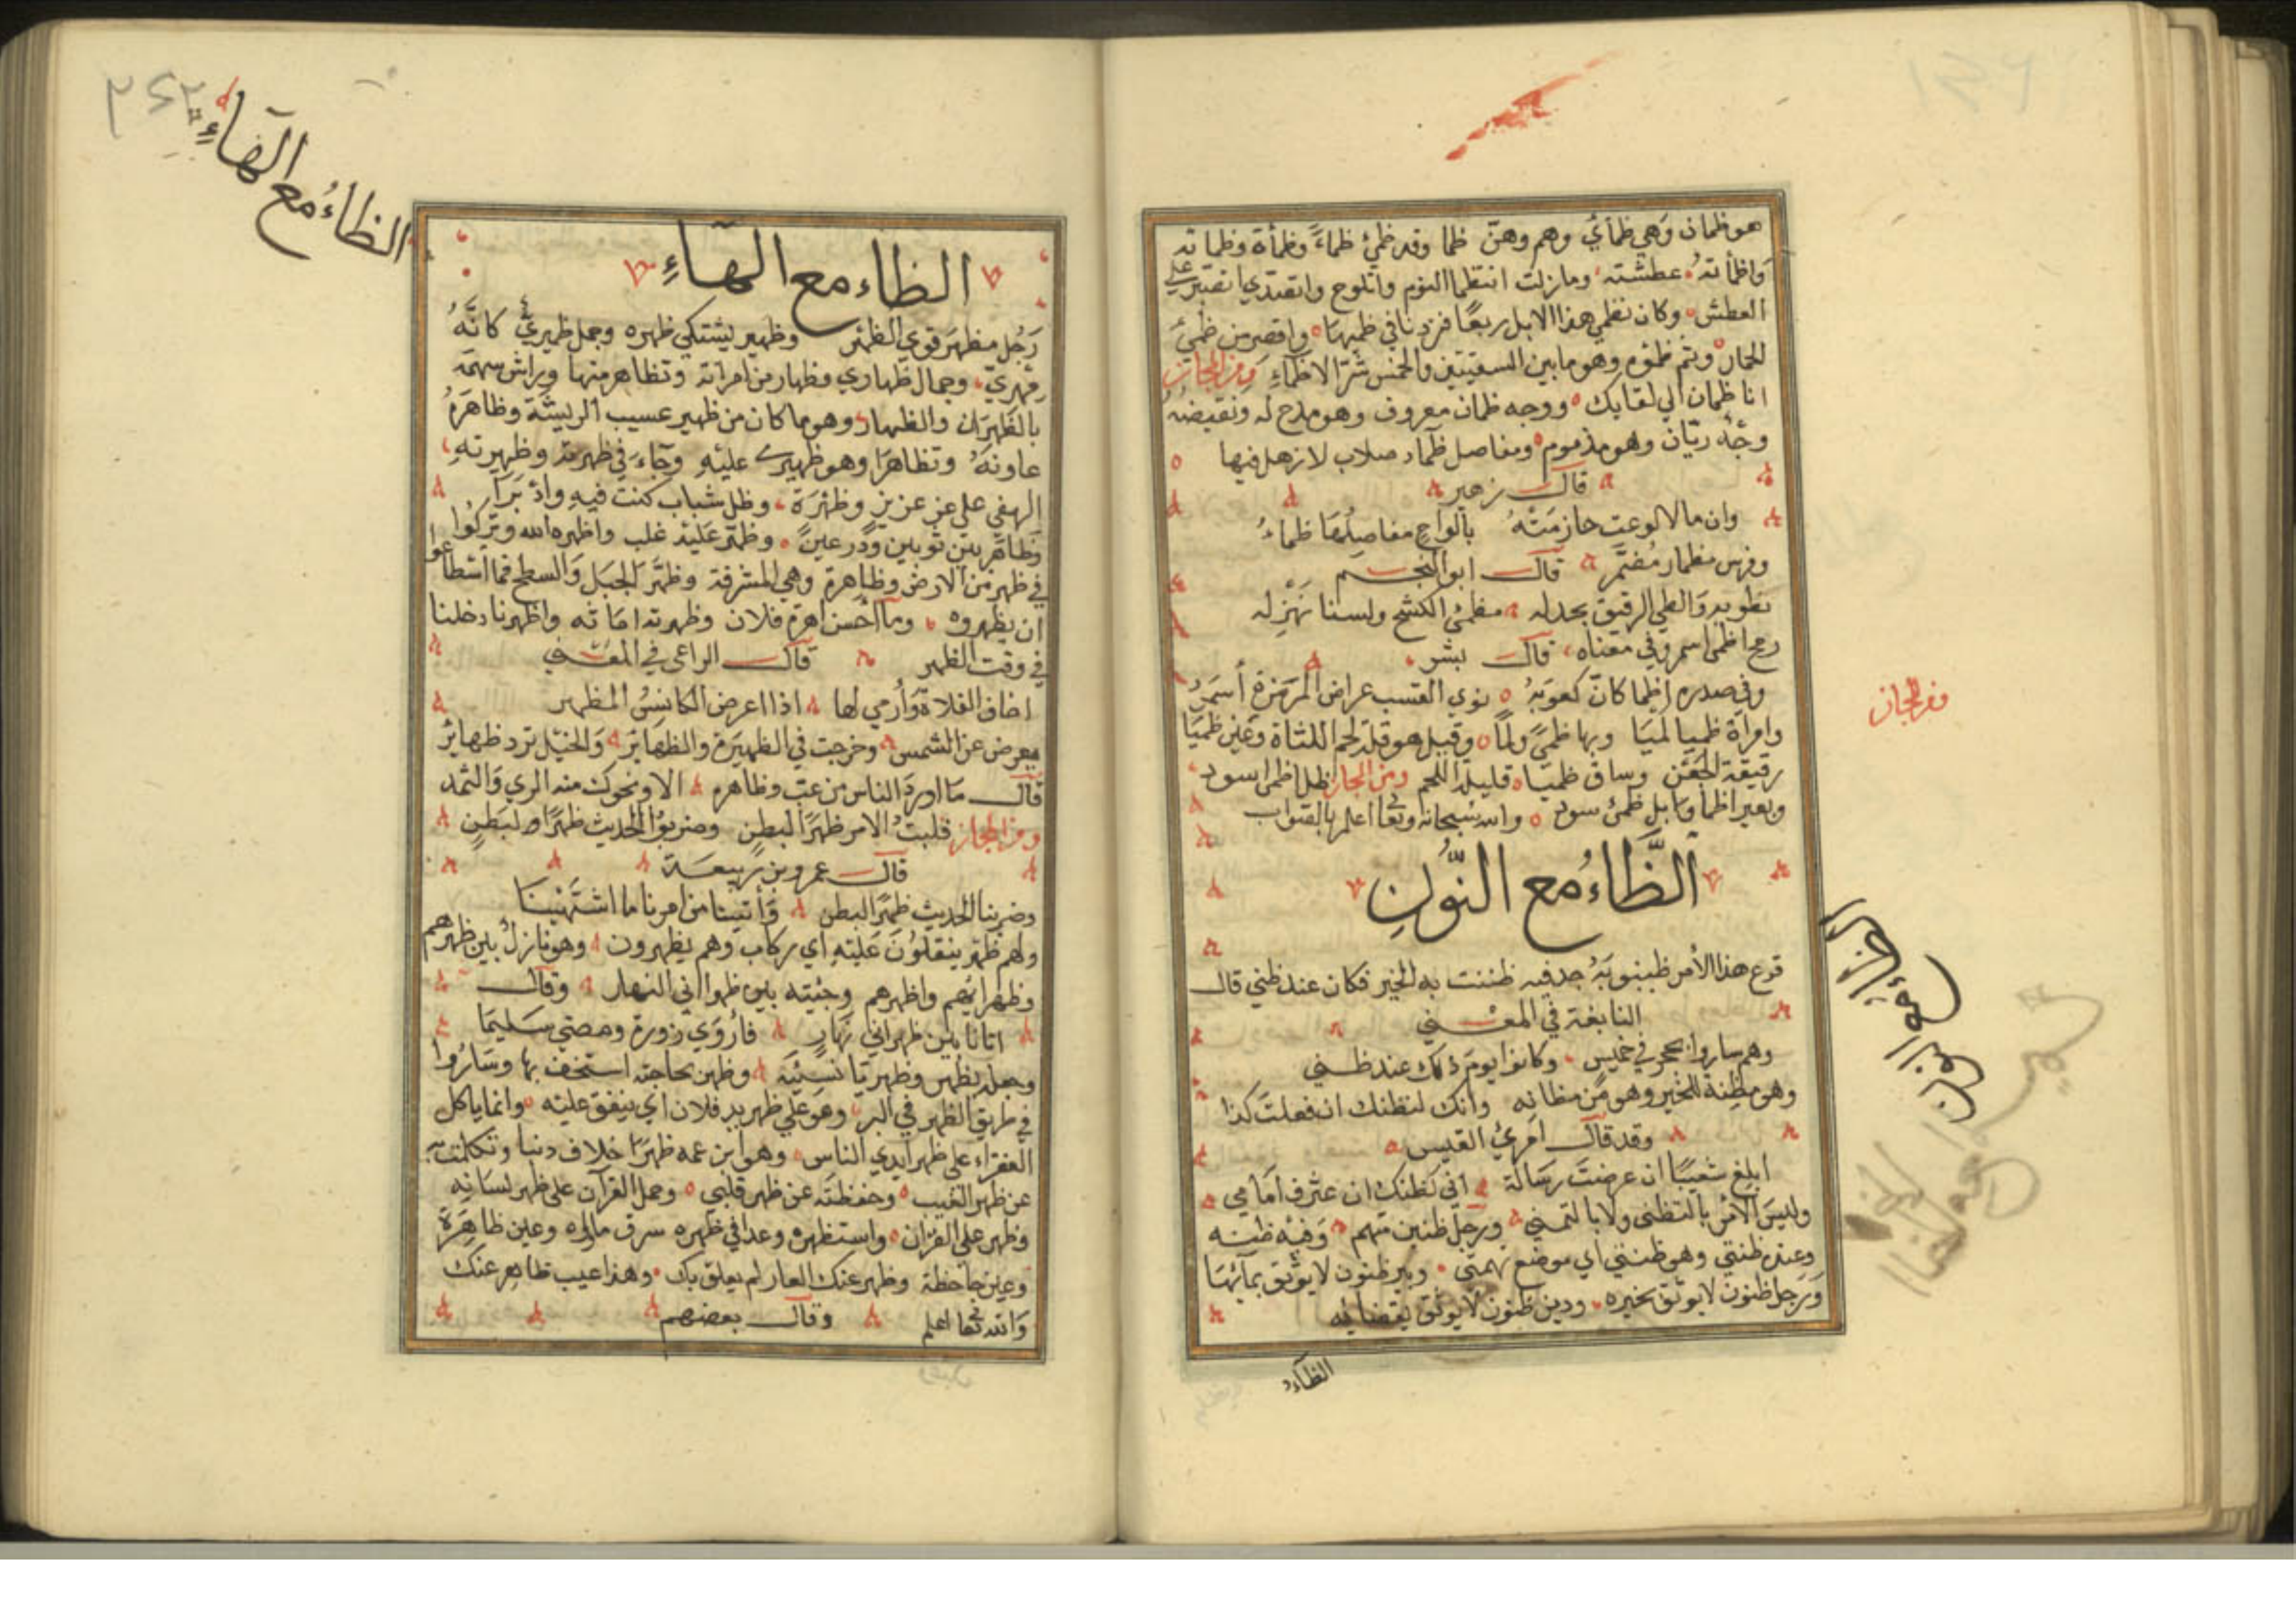 هو ظمآن وهي ظمأي وهم وهن ظما وقد ظمئ ظماءً وظمأة وظماته
واظأته عطشته وما زلت انتظما اليوم واتلوح واتقددي اتصبر علي
العطش وكان نظمي هذا الابل ربعًا فزدنا في ظميها واقصر من ظمئ
الحمار وتم ظمؤه وهو ما بين السقيتين والخمس شر الاظماء ومن المجاز
انا ظمان الي لقايك ووجه ظمان معروف وهو مدح له ونقيضه
وجه ريان وهو مذموم ومفاصل ظماء صلاب لا زهل فيها
قال زهير
وان مالا لوعث خازمته بالواح مفاصلها ظماء
وفرس مظمار مضمر قال ابو النجم
نطويه والطي الرقيق يجدله مظمئ الكشح ولسنا نهزله
رمح اظمى اسمر وفي معناه قال بشر
وفي صدره اظما كان كعوبه نوي القسب عراض المرهزة أسمر
وامرأة ظميا لميا وبها ظمي ولما وقيل هو قلة لحم اللثاة وعين ظميا
رقيقة الجفن وساق ظميا قليلة اللحم ومن المجاز ظل اظمى اسود
وبعير اظما وابل ظمئ سود والله سبحانه وتعا اعلم بالصواب
الظاء مع النون
قرع هذا الأمر ظنبوبه جد فيه ظننت به الخير فكان عند ظني قال
النابغة في المعني
وهم ساروا بحجر في خميس وكانوا يوم ذلك عند ظني
وهو مظنة للخير وهو من مظانه وانك لنظنك ان فعلت كذا
وقد قال امرئ القيس
ابلغ شعيبا ان عرضت رسالة اني كظنك ان عثرف امامي
وليس الأمر بالتظني ولا بالتمني ورجل ظنين متهم وفيه ظنه
وعنده ظنتي وهو ظنني اي موضع تهمتي وبير ظنون لا يوثق بمآئها
ورجل ظنون لا يوثق بخيره ودين ظنون لا يوثق بقضائه
الظاء
ومن المجاز
الظاء مع النون
الظاء مع الهاء
الظاء مع الهاء
رجل مظهر قوي الظهر وظهير يشتكي ظهره وجمل ظهيري كانه
مهري وجمال ظهاري وظهار من امراته وتظاهر منها وراش سهمه
بالظهران والظهار وهو ما كان من ظهير عسيب الريشة وظاهره
عاونه وتظاهرا وهو ظهيري عليه وجاء في ظهرته وظهيرته
الهفي علي عز عزيز وظهرة وظل شباب كنت فيه واد برا
وظاهر بين ثوبين ودرعين وظهر عليه غلب واظهره الله وتركوا
في ظهر من الارض وظاهرة وهي المشرفة وظهر الجبل والسطح فما اسطاعوا
ان يظهروه وما احسن اهرة فلان وظهرته اثاثه واظهرنا دخلنا
في وقت الظهر قال الراعي في المعني
اخاف الفلاة وارمي لها اذا اعرض الكانس المظهر
يعرض عن الشمس وخرجت في الظهيرة والظهاير والخيل ترد ظهاير
قال ما اورد الناس من غب وظاهره الا ونحوك منه الري والثمد
ومن المجاز قلبت الامر ظهرًا لبطن وضربوا الحديث ظهرًا لبطن
قال عمرو بن ربيعة
وضربنا الحديث ظهرًا لبطن وأتينا من امرنا ما اشتهينا
ولهم ظهر ينقلون عليه اي ركاب وهم يظهرون وهو نازل بين ظهرهم
وظهرانيهم واظهرهم وجئته بين ظهراني النهار وقال
اتانا بين ظهراني نهار فأروي ذروة ومضي سليما
وجعله بظهر وظهريا نسيته وظهر بحاجته استخف بها وساروا
في طريق الظهر في البر وهو علي ظهر يد فلان اي ينفق عليه وانما ياكل
الفقراء علي ظهر ايدي الناس وهو ابن عمه ظهرًا خلاف دنيا وتكلمت به
عن ظهر الغيب وحفظته عن ظهر قلبي وحمل القرآن علي ظهر لسانه
وظهر علي القران واستظهره وعدا في ظهره سرق ماله وعين ظاهرة
وعين جاحظة وظهر عنك العار لم يعلق بك وهذا عيب ظاهر عنك
والله تعا اعلم وقال بعضهم